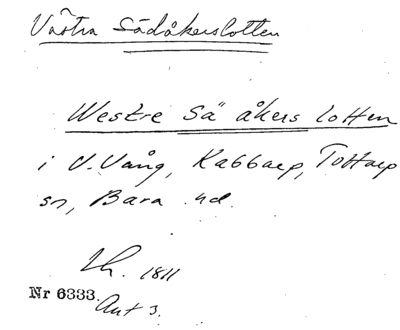 Västra Sädåkerslotten
Westre Sä åkers lotten
i V. Vång, Kabbarp, Tottarp
sn, Bara hd.
Lh. 1811
Nr 6333. Akt 3.